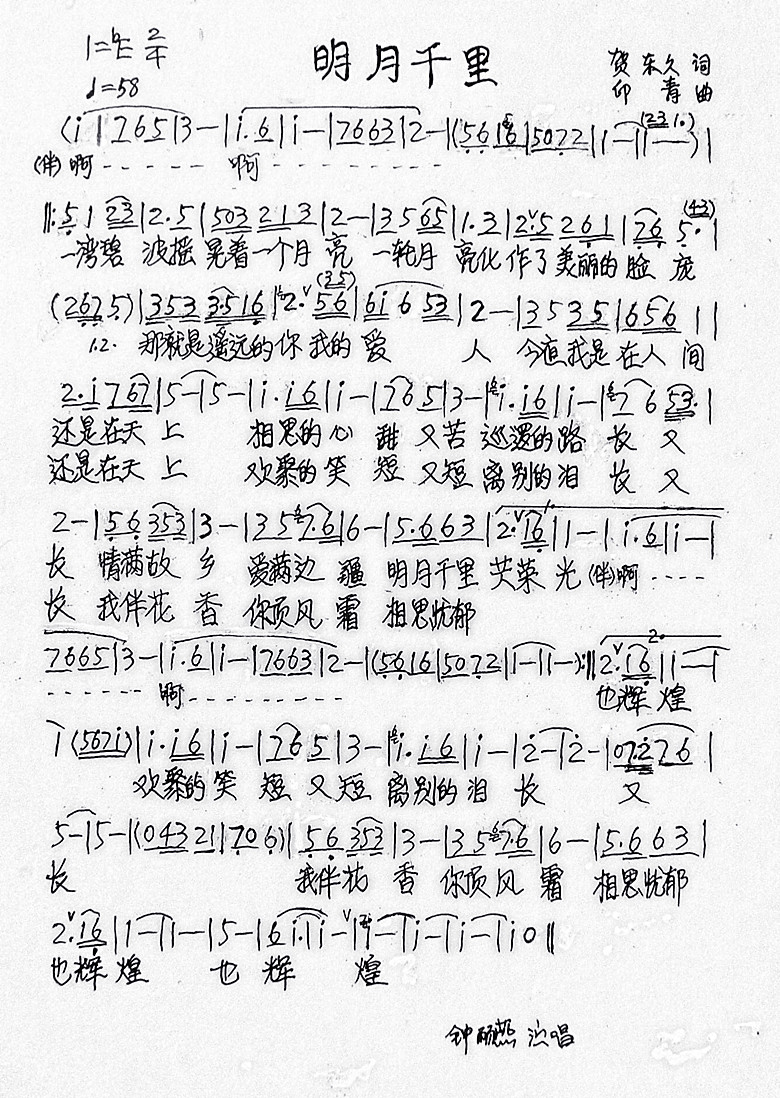 1=♭E 2/4
明月千里
贺东久 词
♩=58
印青 曲
(i|765|3-|i.6|i-|7663|2-|(5616|5072|1-|1-(231.)-)|
(伴)啊----- 啊---------
‖:5 1 23|2.5|503 213|2-|35 65|1.3|2.5 261|26 5.(43)|
一湾碧 波摇 晃着一个月 亮 一轮月 亮化 作了美丽的 脸 庞
(2675)|353 3516|2.56(35)|6i 6 53|2-|35 35|656 1|
1.2. 那就是遥远的你 我的 爱 人 今夜我是 在人 间
2.i 7 67|5-|5-|i.i6|i-|765|3-|i.i6|i-|7 6 53.|
还是在天 上 相思的 心 甜 又 苦 巡逻的路 长 又
还是在天 上 欢聚的 笑 短 又 短 离别的泪 长 又
2-|56 353|3-|35 7.6|6-|5.6 63|2.16|1-|i.6|i-|
长 情满故 乡 爱满边 疆 明月千里 共荣 光 (伴)啊----
长 我伴花 香 你顶风 霜 相思忧郁
7665|3-|i.6|i-|7663|2-|(5616|5072|1-|1-):‖2.16|1-|
2.
------ 啊---------
也辉 煌
1(567i)|i.i6|i-|765|3-|i.i6|i-|2-|2-|072 76|
欢聚的 笑 短 又 短 离别的 泪 长 又
5-|5-|(0432 1|706)|56 353|3-|35 7.6|6-|5.6 63|
长 我伴花 香 你顶风 霜 相思忧郁
2.16|1-|1-|5-|6 i.i|i-|i-|i-|i-|i0‖
也辉 煌 也 辉 煌
钟丽燕 演唱